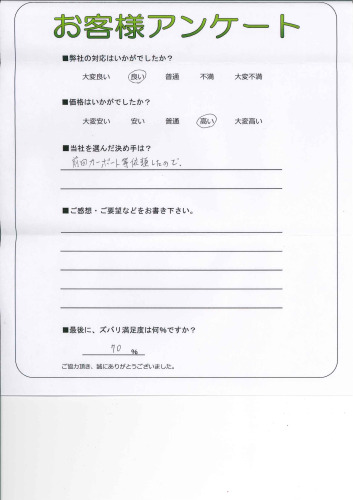 お客様アンケート
■弊社の対応はいかがでしたか?
大変良い 良い 普通 不満 大変不満
■価格はいかがでしたか?
大変安い 安い 普通 高い 大変高い
■当社を選んだ決め手は?
前回カーポート等依頼したので、
■ご感想・ご要望などをお書き下さい。
■最後に、ズバリ満足度は何%ですか?
70 %
ご協力頂き、誠にありがとうございました。